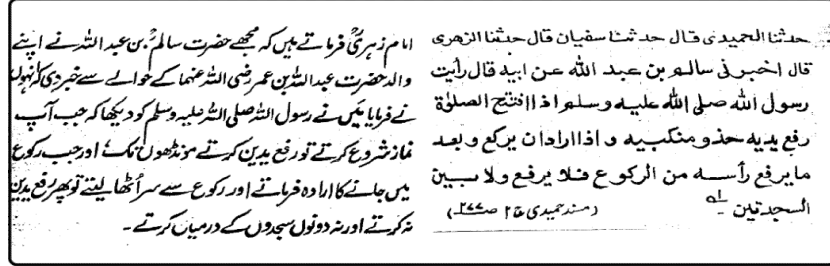 حدثنا الحمیدی قال حدثنا سفیان قال حدثنا الزهری
قال اخبرنی سالم بن عبد الله عن ابیه قال رأیت
رسول الله صلی الله علیه وسلم اذا افتتح الصلوٰة
رفع یدیه حذو منکبیه و اذا ارادان یرکع و بعد
ما یرفع رأسه من الرکوع فلا یرفع ولا بین
السجدتین (مسند حمیدی ج ۲ ص ۲۷۷)
امام زہریؒ فرماتے ہیں کہ مجھے حضرت سالمؒ بن عبد اللہ نے اپنے
والد حضرت عبد اللہ بن عمر رضی اللہ عنہما کے حوالے سے خبر دی کہ انہوں
نے فرمایا میں نے رسول اللہ صلی اللہ علیہ وسلم کو دیکھا کہ جب آپ
نماز شروع کرتے تو رفع یدین کرتے مونڈھوں تک اور جب رکوع
میں جانے کا ارادہ فرماتے اور رکوع سے سر اُٹھا لیتے تو پھر رفع یدین
نہ کرتے اور نہ دونوں سجدوں کے درمیان کرتے ۔